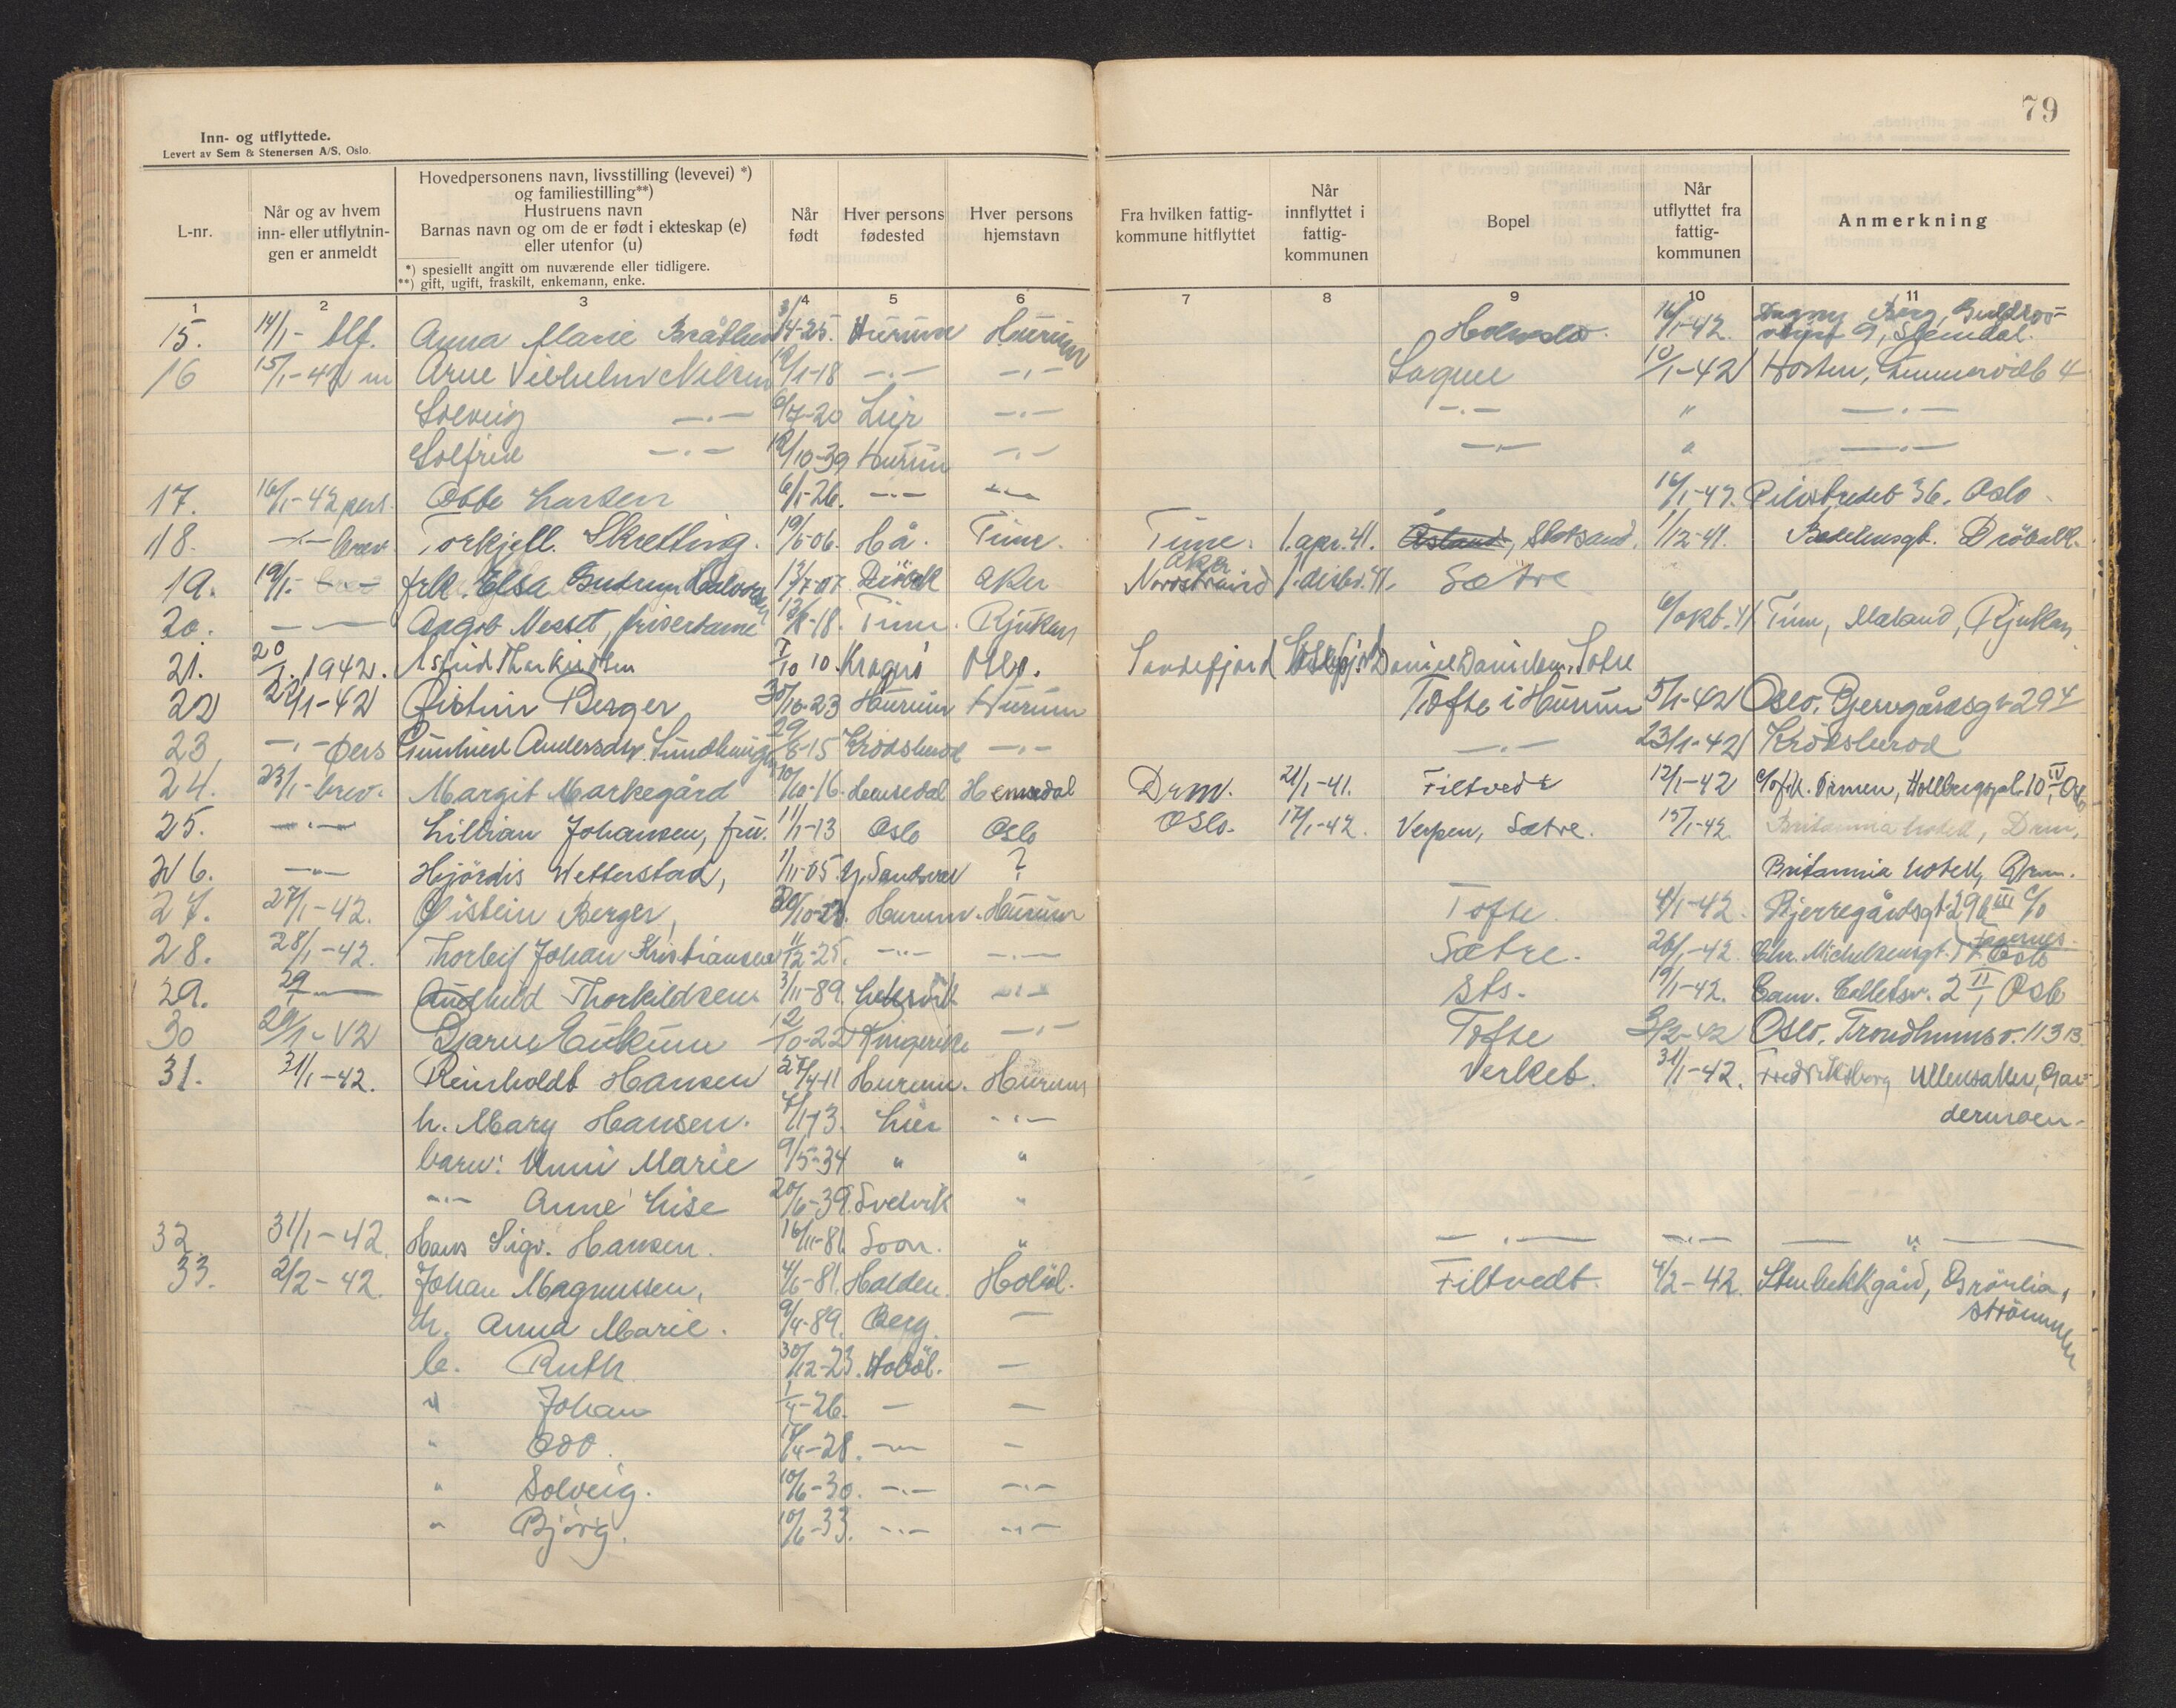 79
Inn- og utflyttede.
Levert av Sem & Stenersen A/S, Oslo.
L-nr.
Når og av hvem
inn- eller utflytnin-
gen er anmeldt
Hovedpersonens navn, livsstilling (levevei) *)
og familiestilling**)
Hustruens navn
Barnas navn og om de er født i ekteskap (e)
eller utenfor (u)
*) spesiellt angitt om nuværende eller tidligere.
**) gift, ugift, fraskilt, enkemann, enke.
Når
født
Hver persons
fødested
Hver persons
hjemstavn
Fra hvilken fattig-
kommune hitflyttet
Når
innflyttet i
fattig-
kommunen
Bopel
Når
utflyttet fra
fattig-
kommunen
Anmerkning
1 2 3 4 5 6 7 8 9 10 11
15. 14/1- tlf. Anna Marie Bråthen 3/4-25. Hurum Hurum 16/1-42. Dagny Berg,
9, Slemdal.
16 15/1-42 m Arne Vilhelm Nilsen 12/1-18 -"- -"- Sagene 10/1-42 Horten, 4
Solveig -"- 6/7-20 Lier -"- -"- " -"-
Solfrid -"- 12/10-39 Hurum -"- -"- " -"-
17. 16/1-42 pers. Obbe Larsen 6/1-26. -"- -"- 16/1-42. Pilestredet 36, Oslo
18. -"- brev. Torkjell Skretting. 19/6-06. Hå. Time. Time. 1. apr. 41. Åsland, Slotsand. 1/12-41. Drøbak.
19. 19/1- frk. Elsa Gudrun Halvorsen 13/7-07. Drøbak Aker Aker
Nordstrand 1. desbr. 41. Sætre
20. -"- Aagot Messet, frisørdame 12/8-18. Tinn. Rjukan 6/okt. 41 Tinn, Mæland, Rjukan
21. 20/1. 1942. Astrid Thorkildsen 7/10 10. Kragerø Oslo. Sandefjord Daniel Danielsen, Sætre
22 22/1-42 Øistein Berger 30/10-23 Hurum Hurum Tofte i Hurum 5/1-42 Oslo, Bjerregårdsgt 29
23 -"- pers Gunhild Andersdtr. 29/8-15 Krødsherad -"- -"- 23/1-42 Krødsherad
24. 23/1- brev. Margit Markegård 10/10-16. Hemsedal Hemsedal Drm. 21/1-41. Filtvedt 12/1-42 c/o frk. Holbergspl. 10 IV, Oslo
25. -"- Lillian Johansen, fru. 11/1-13 Oslo Oslo Oslo. 17/1-42. Verpen, Sætre. 15/1-42. Britannia hotell, Drm.
26. -"- Hjördis Wetterstad, 1/11-05. ? Britannia hotell, Drm.
27. 27/1-42. Øistein Berger, 30/10-23. Hurum. Hurum Tofte. 4/1-42. Bjerregårdsgt 29b III c/o
28. 28/1-42. Thorleif Johan Kristiansen 11/12-25. -"- -"- Sætre. 26/1-42. Chr. Michelsensgt. Oslo
29. 29/1 -"- Audhild Thorkildsen 3/11-89. Leksvik -"- Sts. 19/1-42. Cam. Colletsv. 2 II, Oslo
30 29/1-42 Bjarne 12/10-22 Ringerike -"- Tofte 3/2-42 Oslo, Trondheimsv. 113 B.
31. 31/1-42. Reinholdt Hansen 27/4-11 Hurum. Hurum Verket. 31/1-42. Fredriksborg Ullensaker, Gar-
h. Mary Hansen. 7/1-13. Lier -"- dermoen.
barn: Unni Marie 9/5-34 " "
-"- Anne Lise 20/6-39. Svelvik "
32 31/1-42. Hans Sigv. Hansen. 16/11-81. Soon. " -"- -"- -"-
33. 2/2-42. Johan Magnussen, 4/6-81. Halden. Hobøl. Filtvedt. 4/2-42. Stenbekkgård, Grönlia,
h. Anna Marie. 9/4-89. Berg. — Strömmen
b. Ruth 30/12-23. Hobøl. —
" Johan 1/4-26. — —
" Odd. 18/4-28. -"- —
" Solveig. 10/6-30. -"- -"-
" Bjørg. 10/6-33. -"- -"-